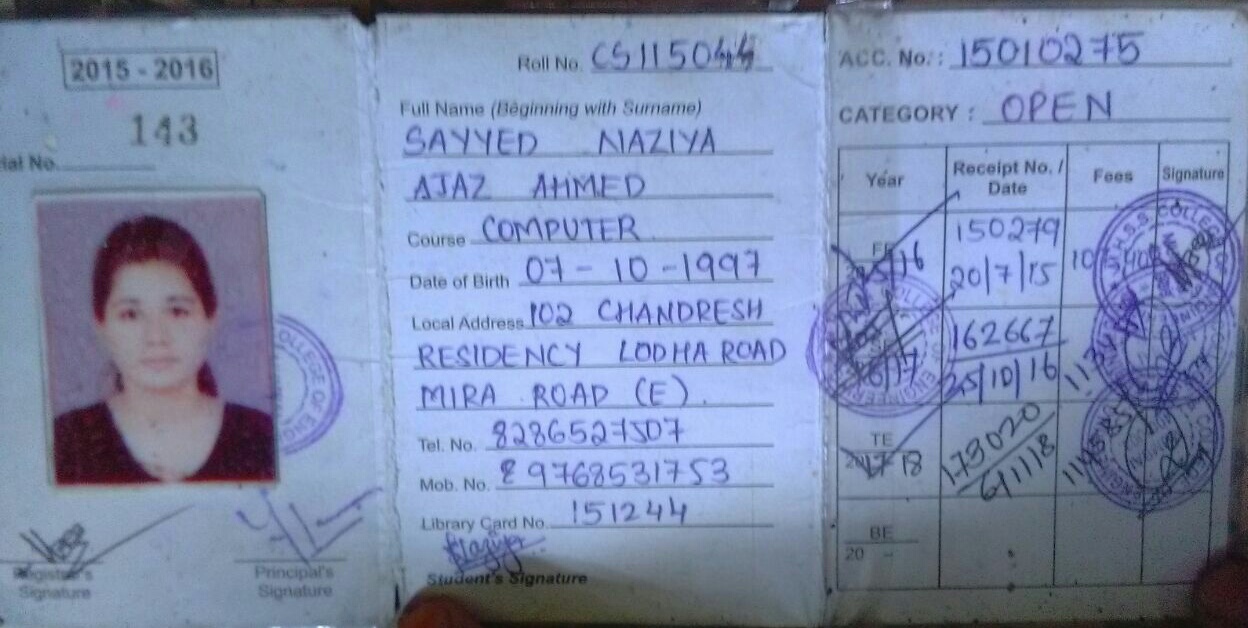 2015 - 2016
143
ial No.
Registrar's Signature
Principal's Signature
Roll No. CS115044
Full Name (Beginning with Surname)
SAYYED NAZIYA
AJAZ AHMED
Course COMPUTER
Date of Birth 07 - 10 - 1997
Local Address 102 CHANDRESH
RESIDENCY LODHA ROAD
MIRA ROAD (E).
Tel. No. 8286527507
Mob. No. 9768531753
Library Card No. 151244
Naziya
Student's Signature
ACC. No. : 15010275
CATEGORY : OPEN
Year Receipt No. / Date Fees Signature
FE 150279
20/7/15
162667
25/10/16
TE 173020
2017 18 6/1/18
BE
20 -
COLLEGE OF ENG